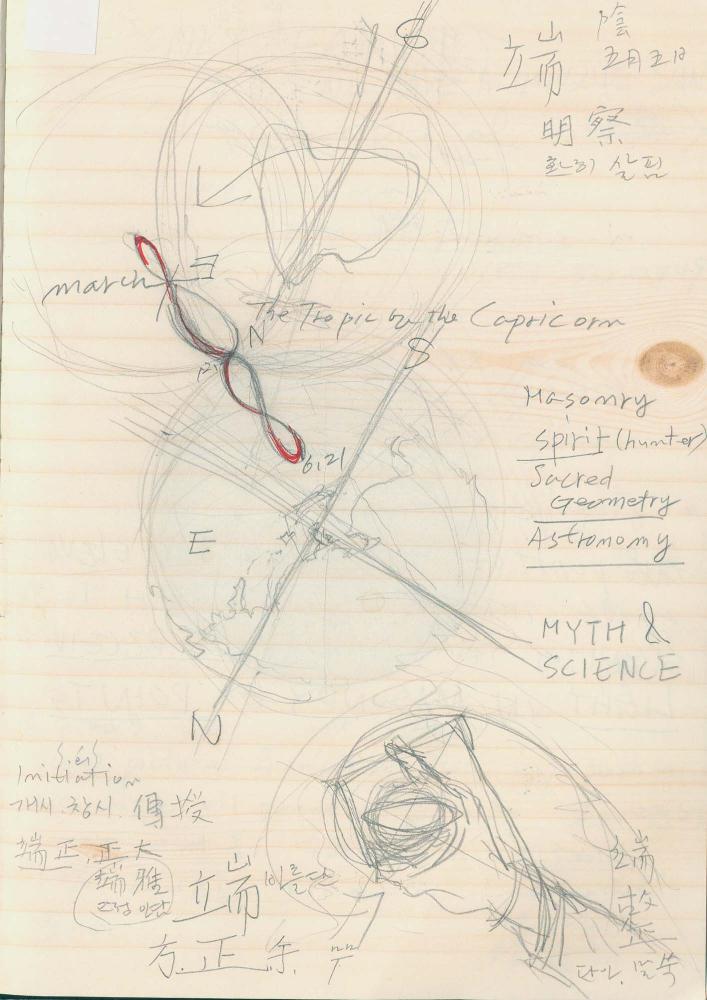 S
端 陰
五月五日
明察
환히 살핌
ㅋ
march
N
The Tropic by the Capricorn
S
6.21
E
Masonry
spirit (hunter)
Sacred
Geometry
Astronomy
MYTH &
SCIENCE
N
Initiation
개시. 창시. 傳授
端正. 正大
端雅
端 바를단
方. 正.
端
整
단아.